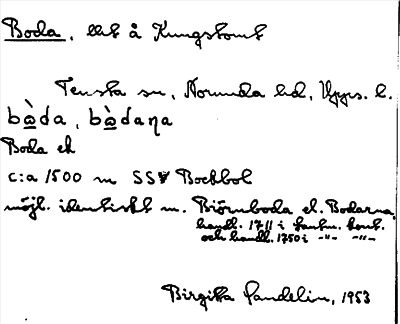 Boda, llt å Kungstomt
Tensta sn, Norunda hd, Upps. l.
bo̱̊̀da, bo̱̊̀daṇa
Boda ek
c:a 1500 m SSV Bockbol
möjl. identiskt m. Björnboda el. Bodarna,
handl. 1711 i lantm. kont.
och handl. 1750 i -"- -"-
Birgitta Sandelin, 1953